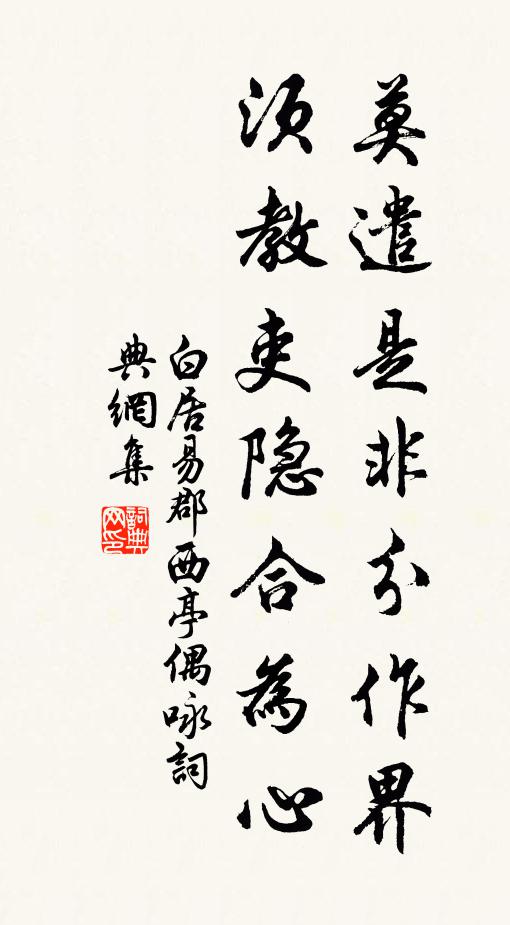 莫遣是非分作界
須教吏隐合為心
白居易郡西亭偶咏詞
典網集
詞典
网印